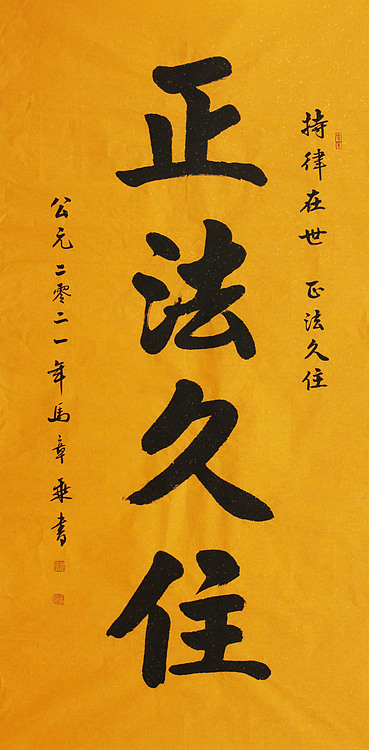 持律在世 正法久住
正法久住
公元二零二一年馬章乘書